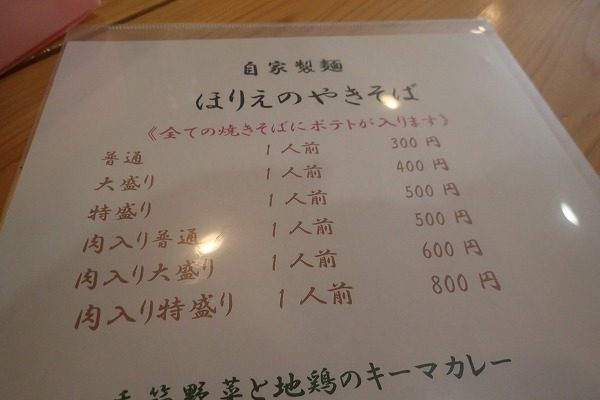 自家製麺
ほりえのやきそば
《全ての焼きそばにポテトが入ります》
普通 1人前 300円
大盛り 1人前 400円
特盛り 1人前 500円
肉入り普通 1人前 500円
肉入り大盛り 1人前 600円
肉入り特盛り 1人前 800円
野菜と地鶏のキーマカレー